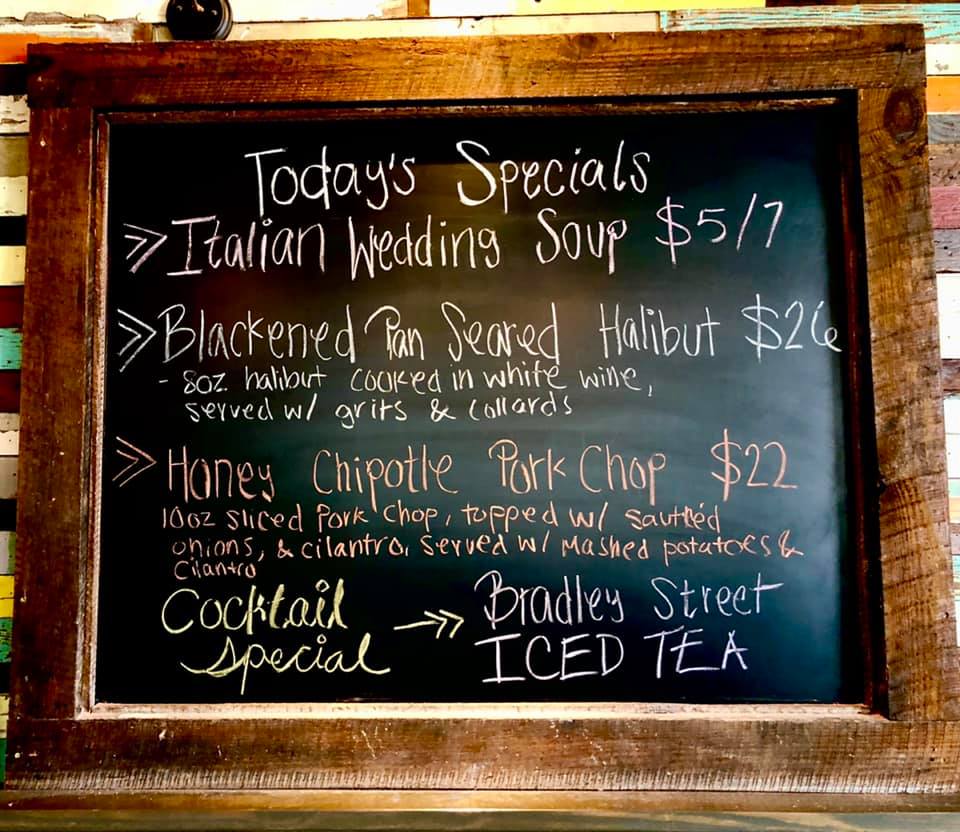 Today's Specials
Italian Wedding Soup $5/7
Blackened Pan Seared Halibut $26
- 8oz. halibut cooked in white wine,
served w/ grits & collards
Honey Chipotle Pork Chop $22
10oz sliced Pork Chop, topped w/ sautéed
onions, & cilantro, served w/ mashed potatoes &
cilantro
Cocktail
Special
Bradley Street
ICED TEA